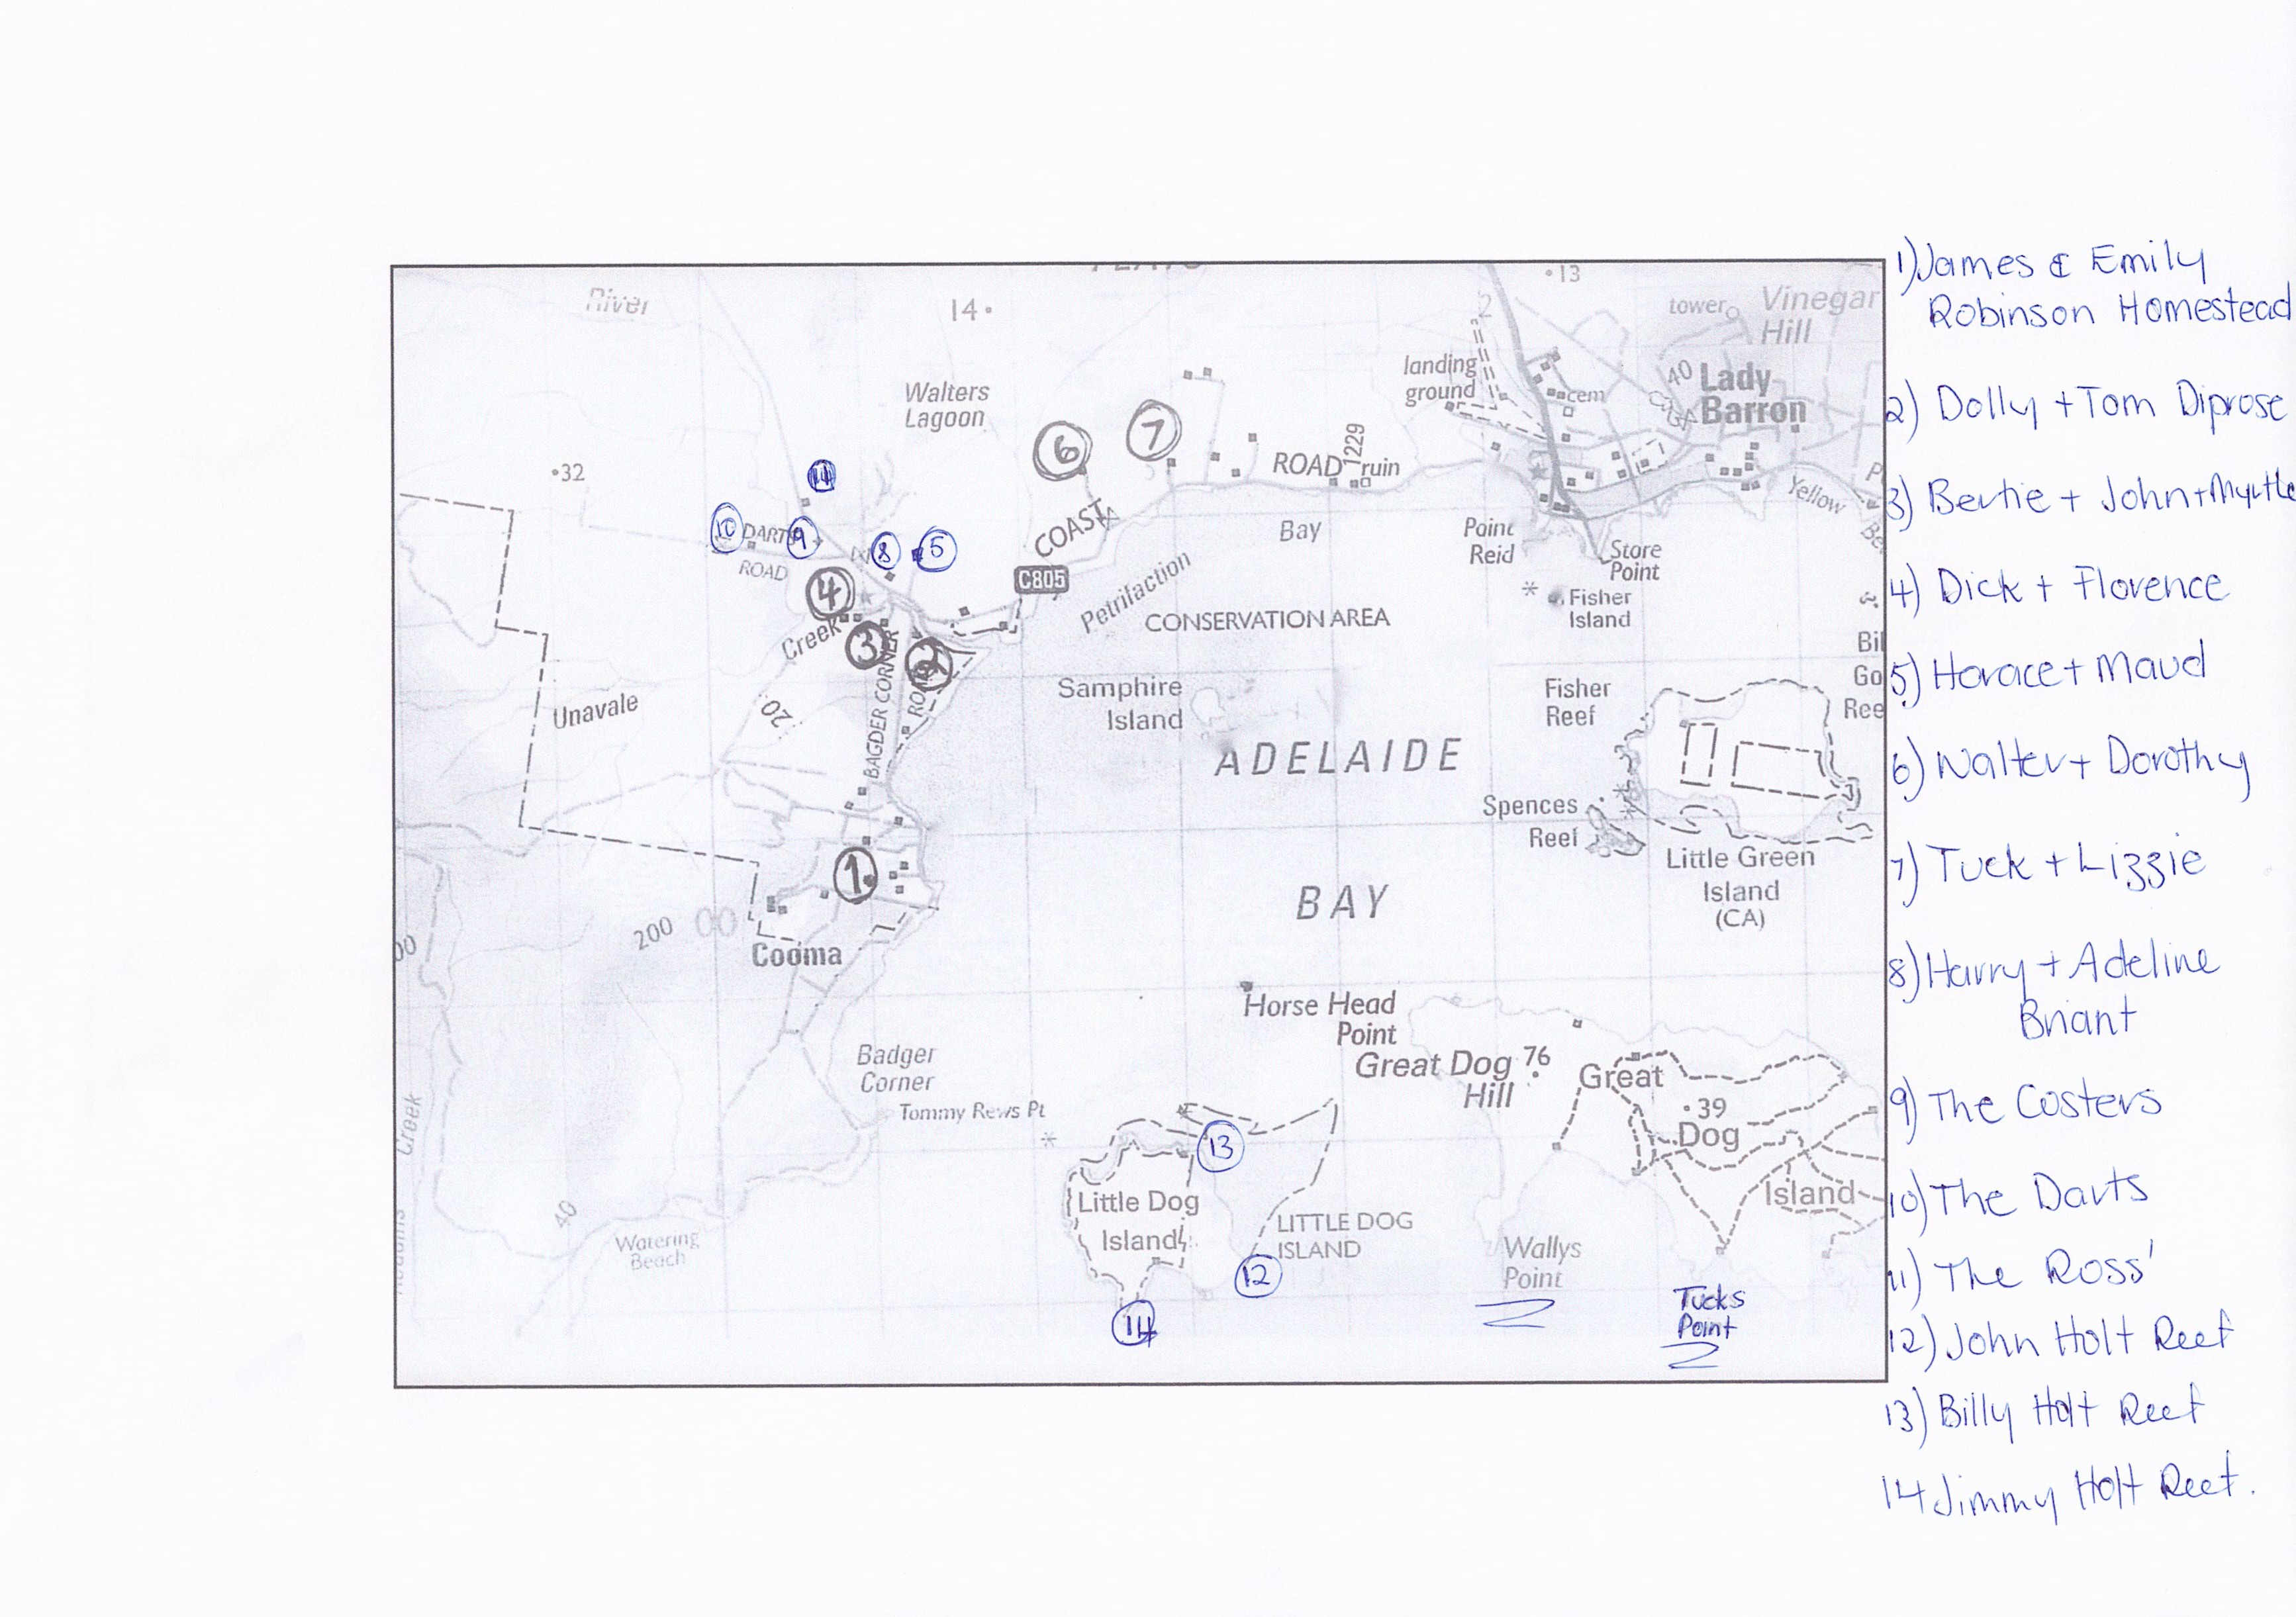 River
14
13
2
tower
Vinegar
Hill
landing
ground
cem
40
Lady
Barron
Walters
Lagoon
6
7
ROAD
1229
ruin
32
11
10
DART
9
8
5
ROAD
COAST
C805
Petrifaction
Bay
Point
Reid
Store
Point
Yellow
Fisher
Island
CONSERVATION AREA
4
Creek
3
2
BAGDER CORNER
ROAD
Unavale
20
Samphire
Island
ADELAIDE
BAY
Fisher
Reef
Bil
Go
Ree
Spences
Reef
Little Green
Island
(CA)
1
200
00
Cooma
Horse Head
Point
Great Dog
Hill
76
Great
39
Dog
Island
Badger
Corner
Tommy Rews Pt
Creek
40
Watering
Beach
13
Little Dog
Island
LITTLE DOG
ISLAND
12
14
Wallys
Point
Tucks
Point
1) James & Emily
Robinson Homestead
2) Dolly + Tom Diprose
3) Bertie + John + Myrtle
4) Dick + Florence
5) Horace + Maud
6) Walter + Dorothy
7) Tuck + Lizzie
8) Harry + Adeline
Briant
9) The Costers
10) The Darts
11) The Ross'
12) John Holt Reef
13) Billy Holt Reef
14 Jimmy Holt Reef.